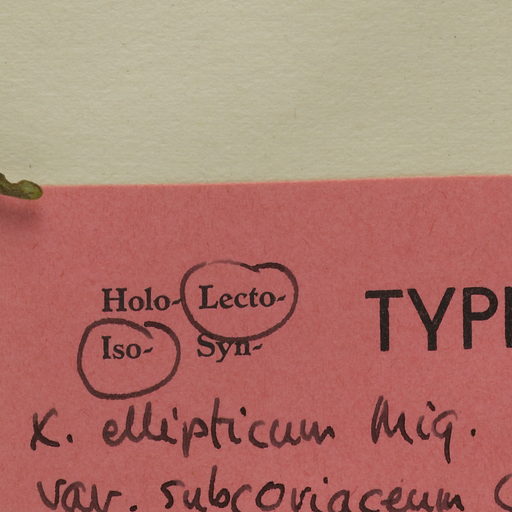 Holo- Lecto-
Iso- Syn-
TYPE
X. ellipticum Miq.
var. subcoriaceum